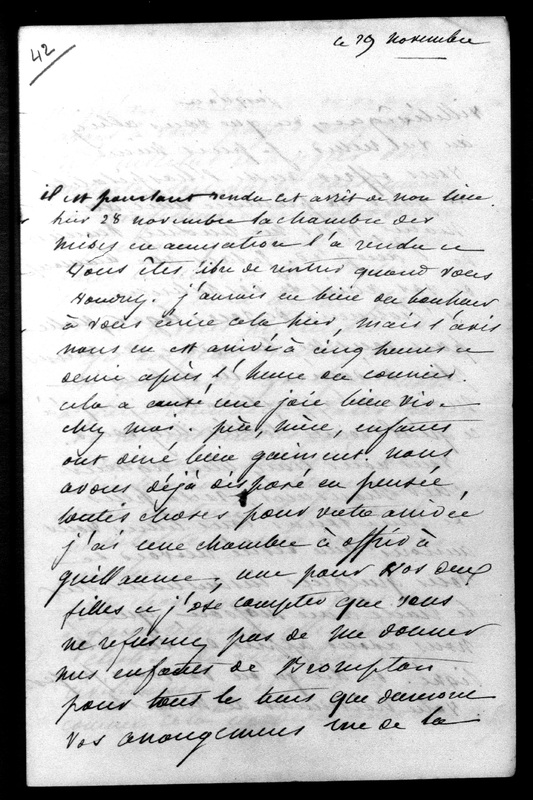 42
le 29 novembre
il est pourtant rendu cet arrêt de non lieu.
hier 28 novembre la chambre des
mises en accusation l'a rendu et
vous êtes libre de rentrer quand vous
voudrez. j'aurais eu bien du bonheur
à vous écrire cela hier, mais l'avis
nous en est arrivé à cinq heures et
demie après l'heure du courrier.
cela a causé une joie bien vive
chez moi. père, mère, enfants
ont diné bien gaiement. nous
avons déjà disposé en pensée
toutes choses pour votre arrivée
j'ai une chambre à offrir à
guillaume, une pour vos deux
filles et j'ose compter que vous
ne refuserez pas de me donner
mes enfants de Brompton
pour tout le tems que dureront
vos arrangemens rue de la